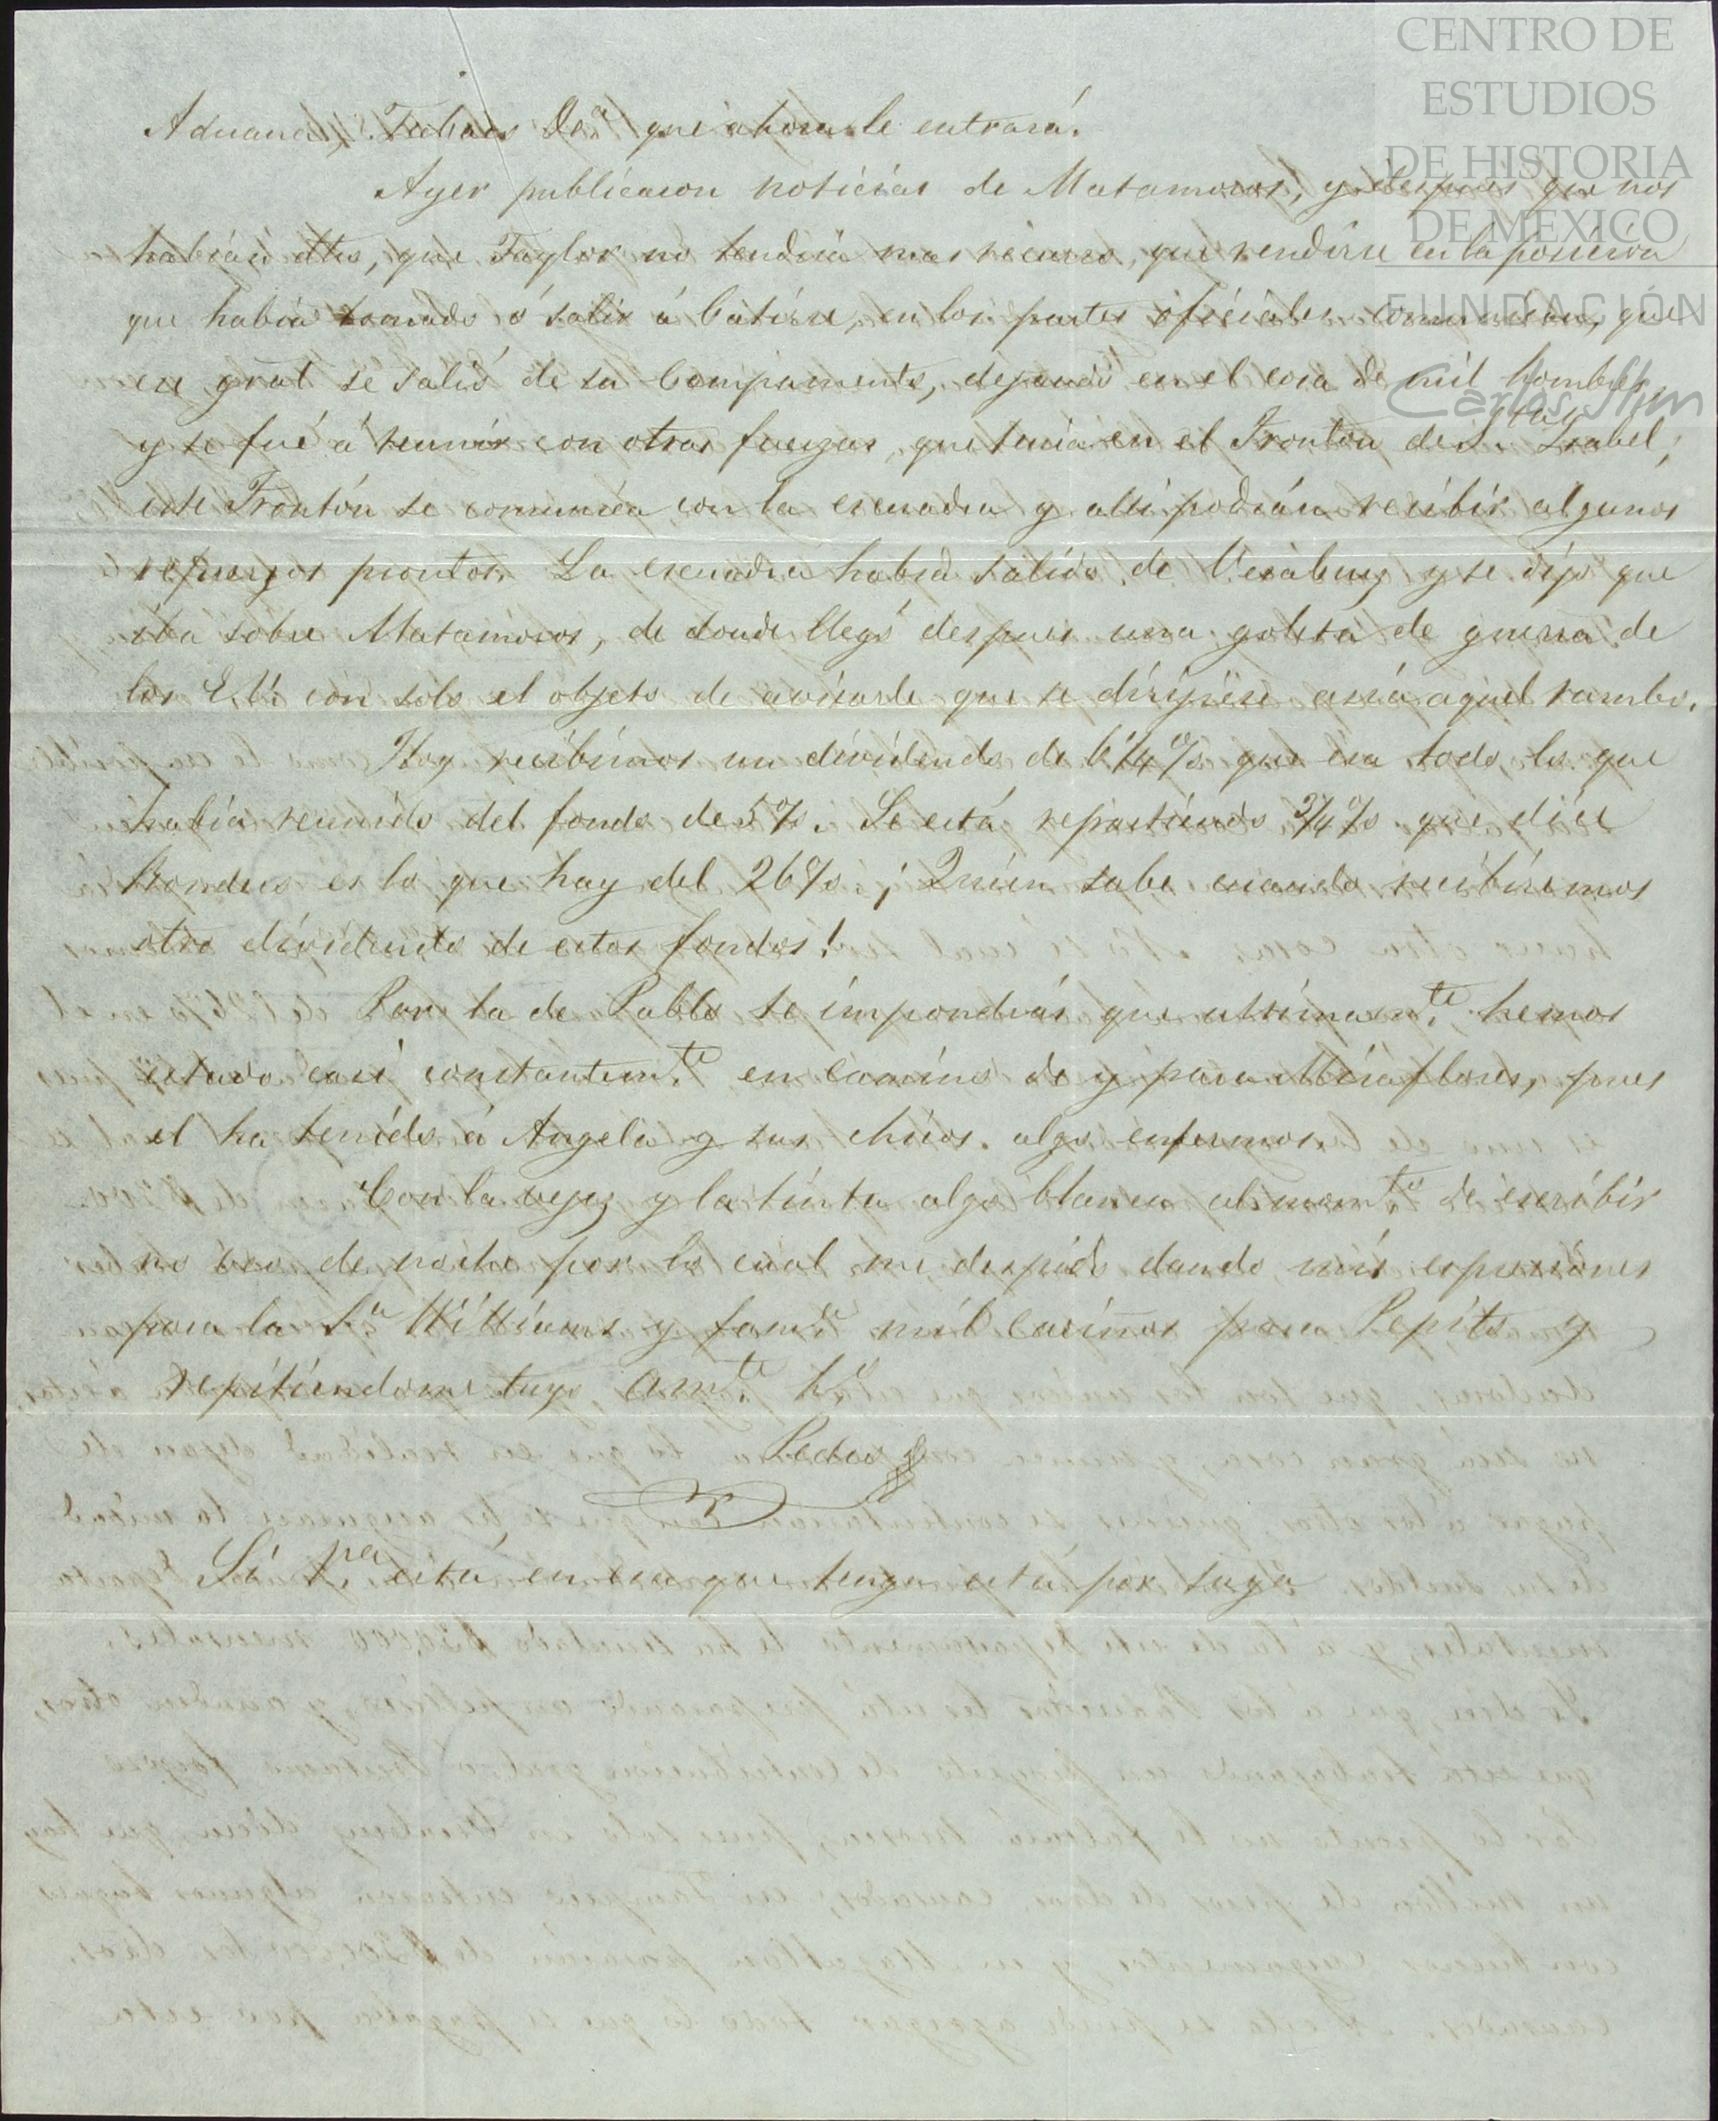 CENTRO DE
ESTUDIOS
DE HISTORIA
DE MÉXICO
FUNDACIÓN
Carlos Slim
Aduanas, Tabacos &ca. que ahora le entrará.
Ayer publicaron noticias de Matamoros, y despues que nos
habían dho, que Taylor no tendria mas recurso, que rendirse en la posicion
que habia tomado ó salir á batirse, en los partes oficiales comunican, que
ese gral se salió de su Campamento, dejando en el cosa de mil hombres
y se fué á reunir con otras fuerzas, que tenia en el Fronton de Sta. Isabel,
este Frontón se comunica con la escuadra y alli podrán recibir algunos
refuerzos prontos. La escuadra habia salido de Veracruz y se dijo que
iba sobre Matamoros, de donde llegó despues una goleta de guerra de
los E. U. con solo el objeto de avisarle que se dirijiese acia aquel rumbo.
Hoy recibimos un dividendo de 6 1/4 % que era todo lo que
habia reunido del fondo de 5 %. Se está repartiendo 3/4 % que dice
es lo que hay del 26 %. ¡ Quien sabe cuando recibiremos
otro dividendo de estos fondos!
Por la de Pablo te impondrás que ultimamte. hemos
estado casi constantemte. en camino de y para Miraflores, pues
el ha tenido á Angela y sus chicos algo enfermos.
Con la vejez y la tinta algo blanca al momto. de escribir
no veo de noche por lo cual me despido dando mis espresiones
para la Sa. Williams y fama. mil cariños para Pepito y
repitiendome tuyo, amte. ho.
Pedro
Si Pa. está en esa que tenga esta por suya